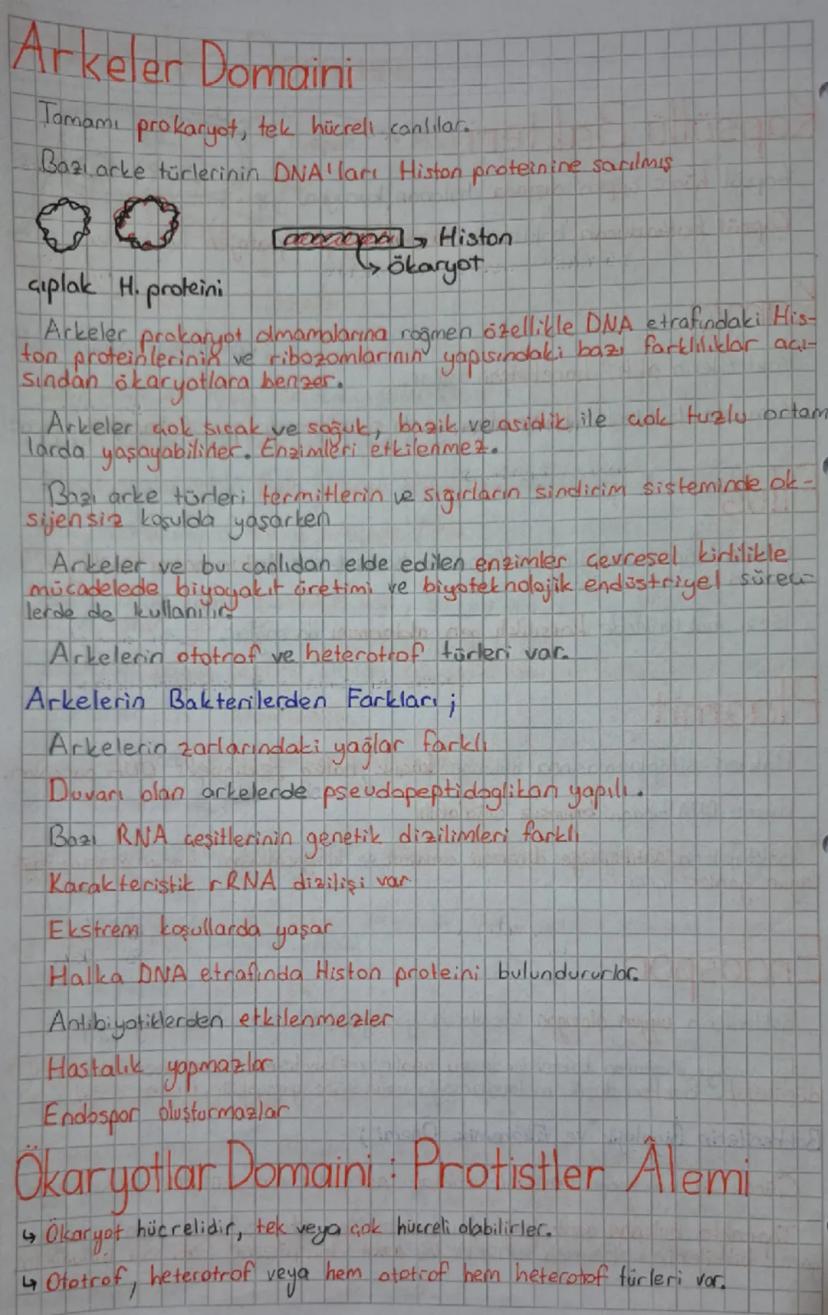 Arkeler Domaini
Tamamı prokaryot, tek hücreli canlılar.
Bazı arke türlerinin DNA'ları Histon proteinine sarılmış
Histon
Ökaryot
çıplak H. proteini
Arkeler prokaryot olmamalarına rağmen özellikle DNA etrafındaki His-
ton proteinlerinin ve ribozomlarının yapısındaki bazı farklılıklar açı-
sından ökaryotlara benzer.
Arkeler çok sıcak ve soğuk, bazik ve asidik ile çok tuzlu ortam
larda yaşayabilirler. Enzimleri etkilenmez.
Bazı arke türleri termitlerin ve sığırların sindirim sisteminde ok-
sijensiz koşulda yaşarken
Arkeler ve bu canlıdan elde edilen enzimler çevresel kirlilikle
mücadelede biyoyakıt üretimi ve biyoteknolojik endüstriyel süreç-
lerde de kullanılır.
Arkelerin ototrof ve heterotrof türleri var.
Arkelerin Bakterilerden Farkları;
Arkelerin zarlarındaki yağlar farklı
Duvarı olan arkelerde pseudopeptidoglikan yapılı.
Bazı RNA çeşitlerinin genetik dizilimleri farklı
Karakteristik rRNA dizilişi var
Ekstrem koşullarda yaşar
Halka DNA etrafında Histon proteini bulundururlar.
Antibiyotiklerden etkilenmezler
Hastalık yapmazlar
Endospor oluşturmazlar
Ökaryotlar Domaini: Protistler Âlemi
↳ Ökaryot hücrelidir, tek veya çok hücreli olabilirler.
↳ Ototrof, heterotrof veya hem ototrof hem heterotrof türleri var.